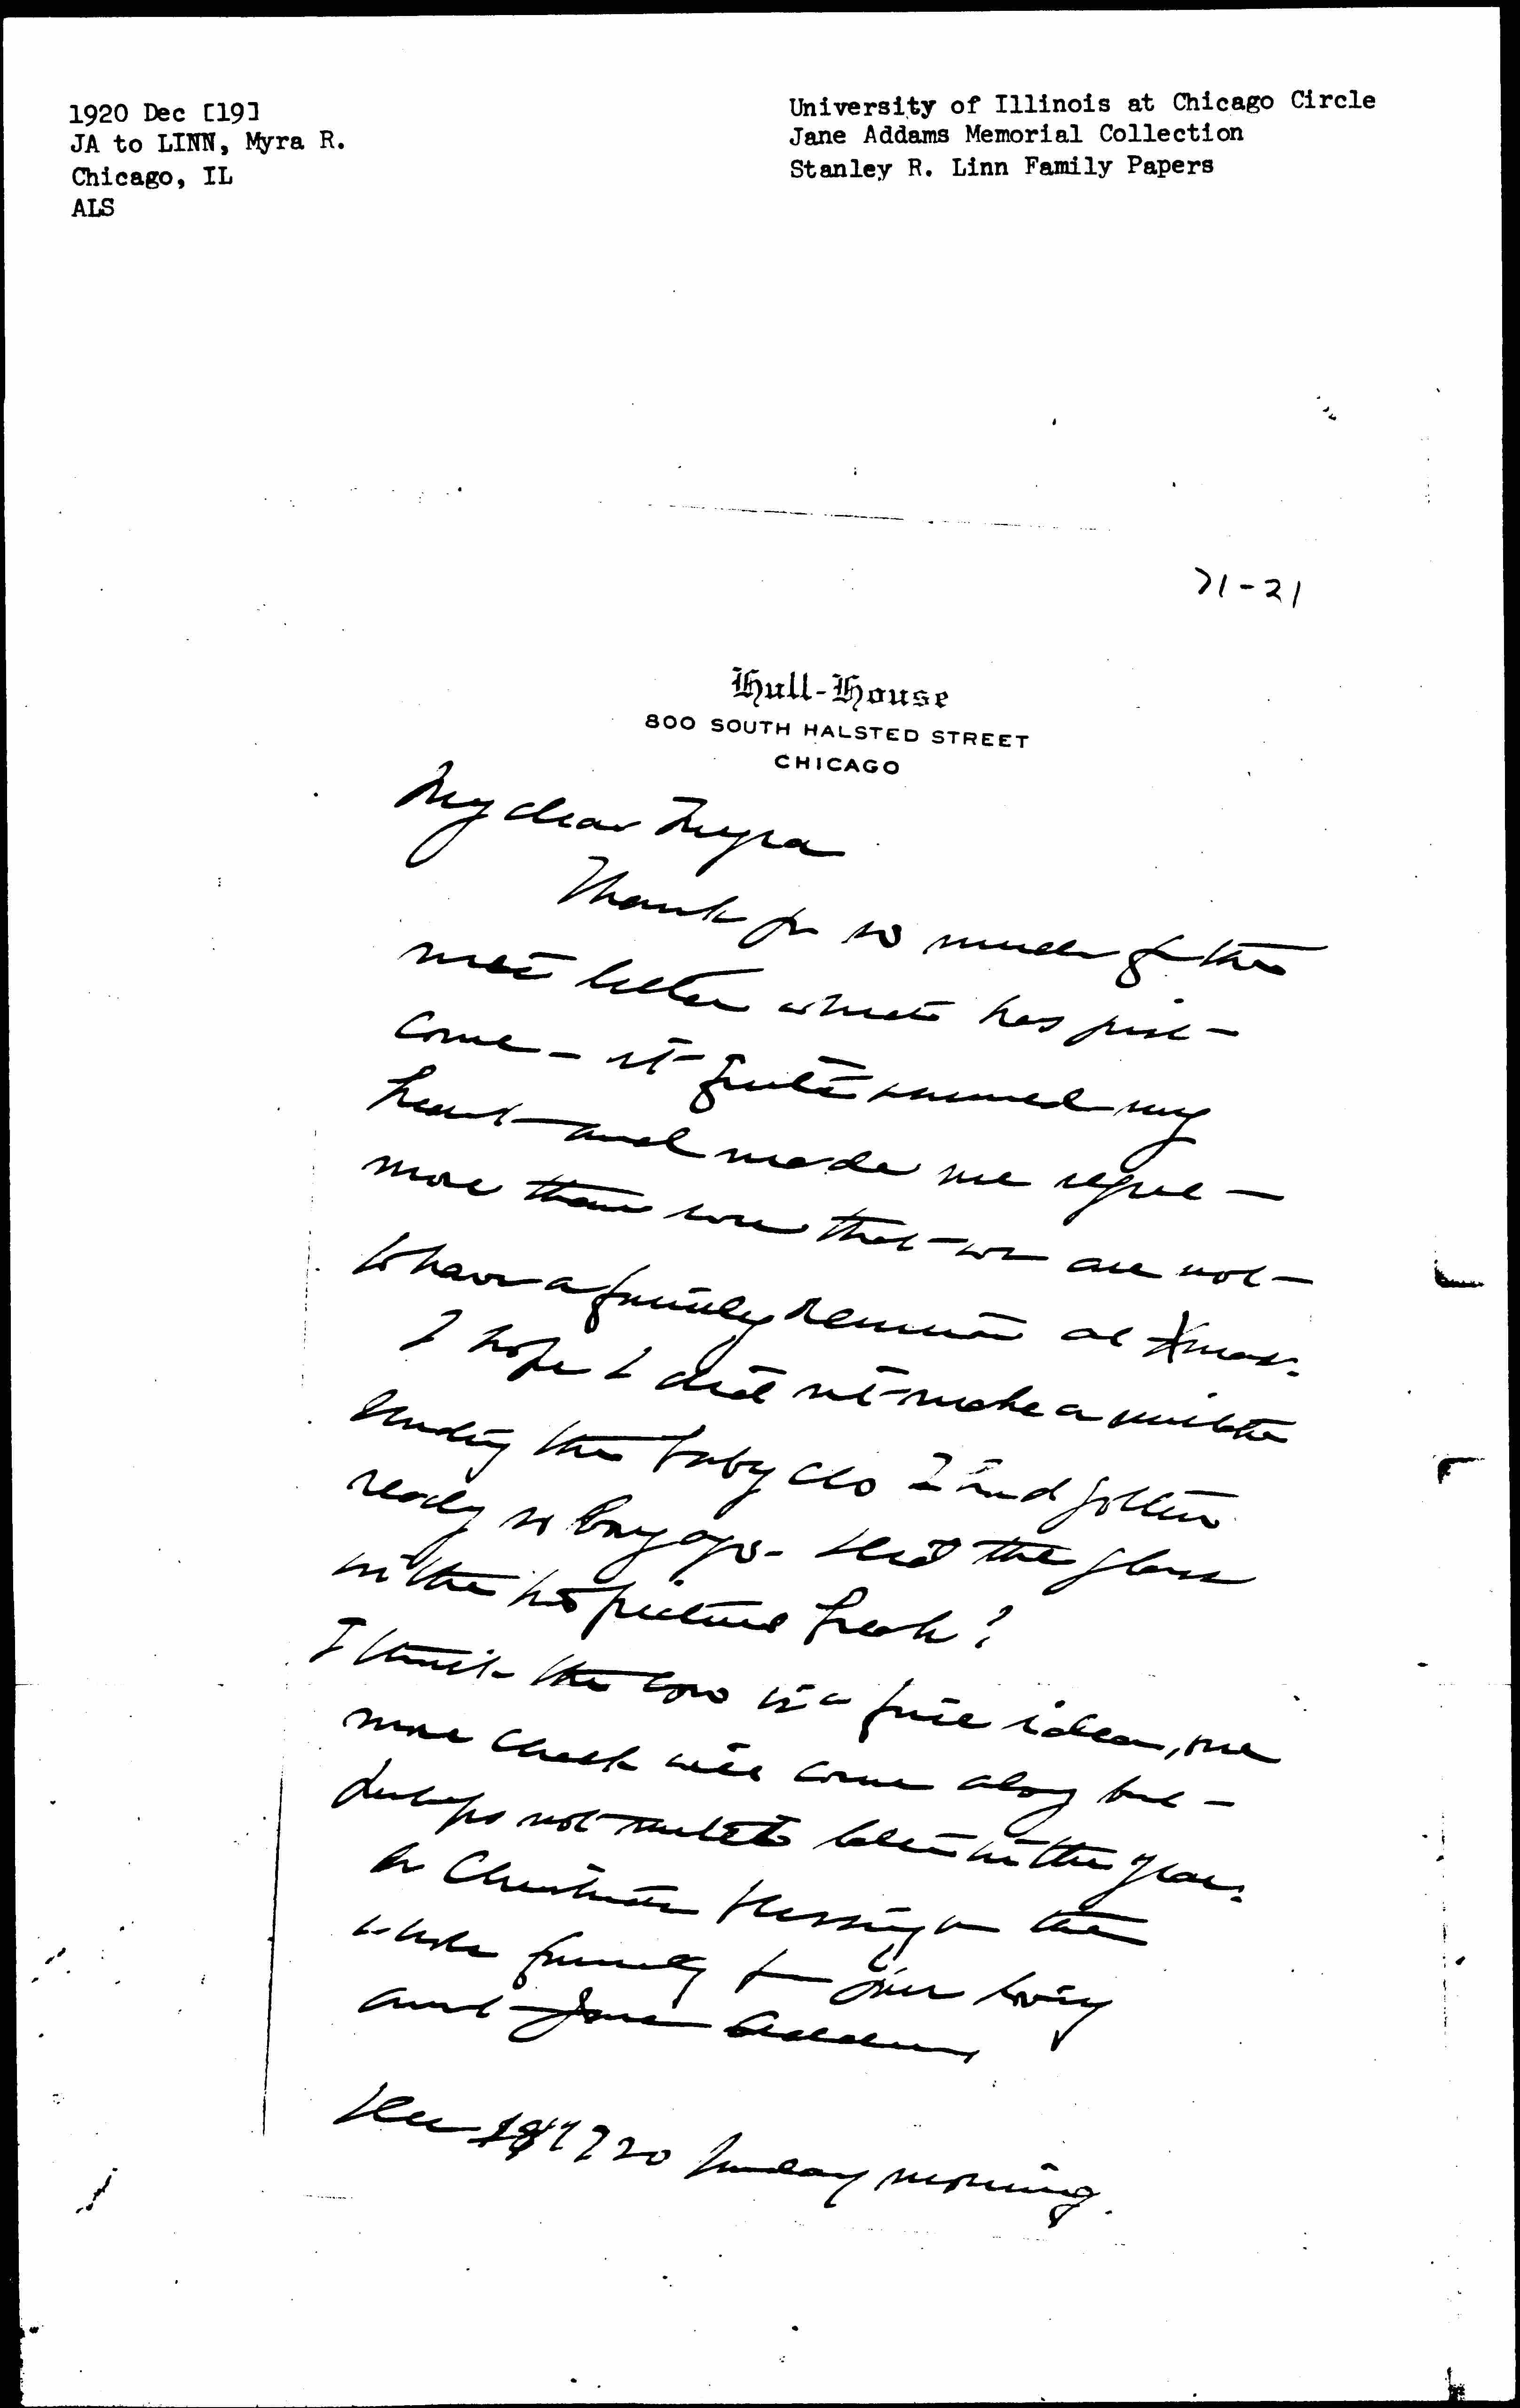 1920 Dec [19]
JA to LINN, Myra R.
Chicago, IL
ALS
University of Illinois at Chicago Circle
Jane Addams Memorial Collection
Stanley R. Linn Family Papers
71-21
Hull-House
800 SOUTH HALSTED STREET
CHICAGO
My dear Myra
Thank you so much for the
nice letter which has just
come - it quite warmed my
heart and made me regret
more than ever that we are not
to have a family reunion at Xmas.
I hope I did not make a mistake
sending the baby clo I had gotten
ready so long ago - Did the glass
in the two pictures break?
I think the cow is a fine idea, one
more check will come along but
perhaps not until later in the year.
A Christmas blessing on the
whole family from your loving
aunt Jane Addams
Dec 18" 1920 Sunday morning.